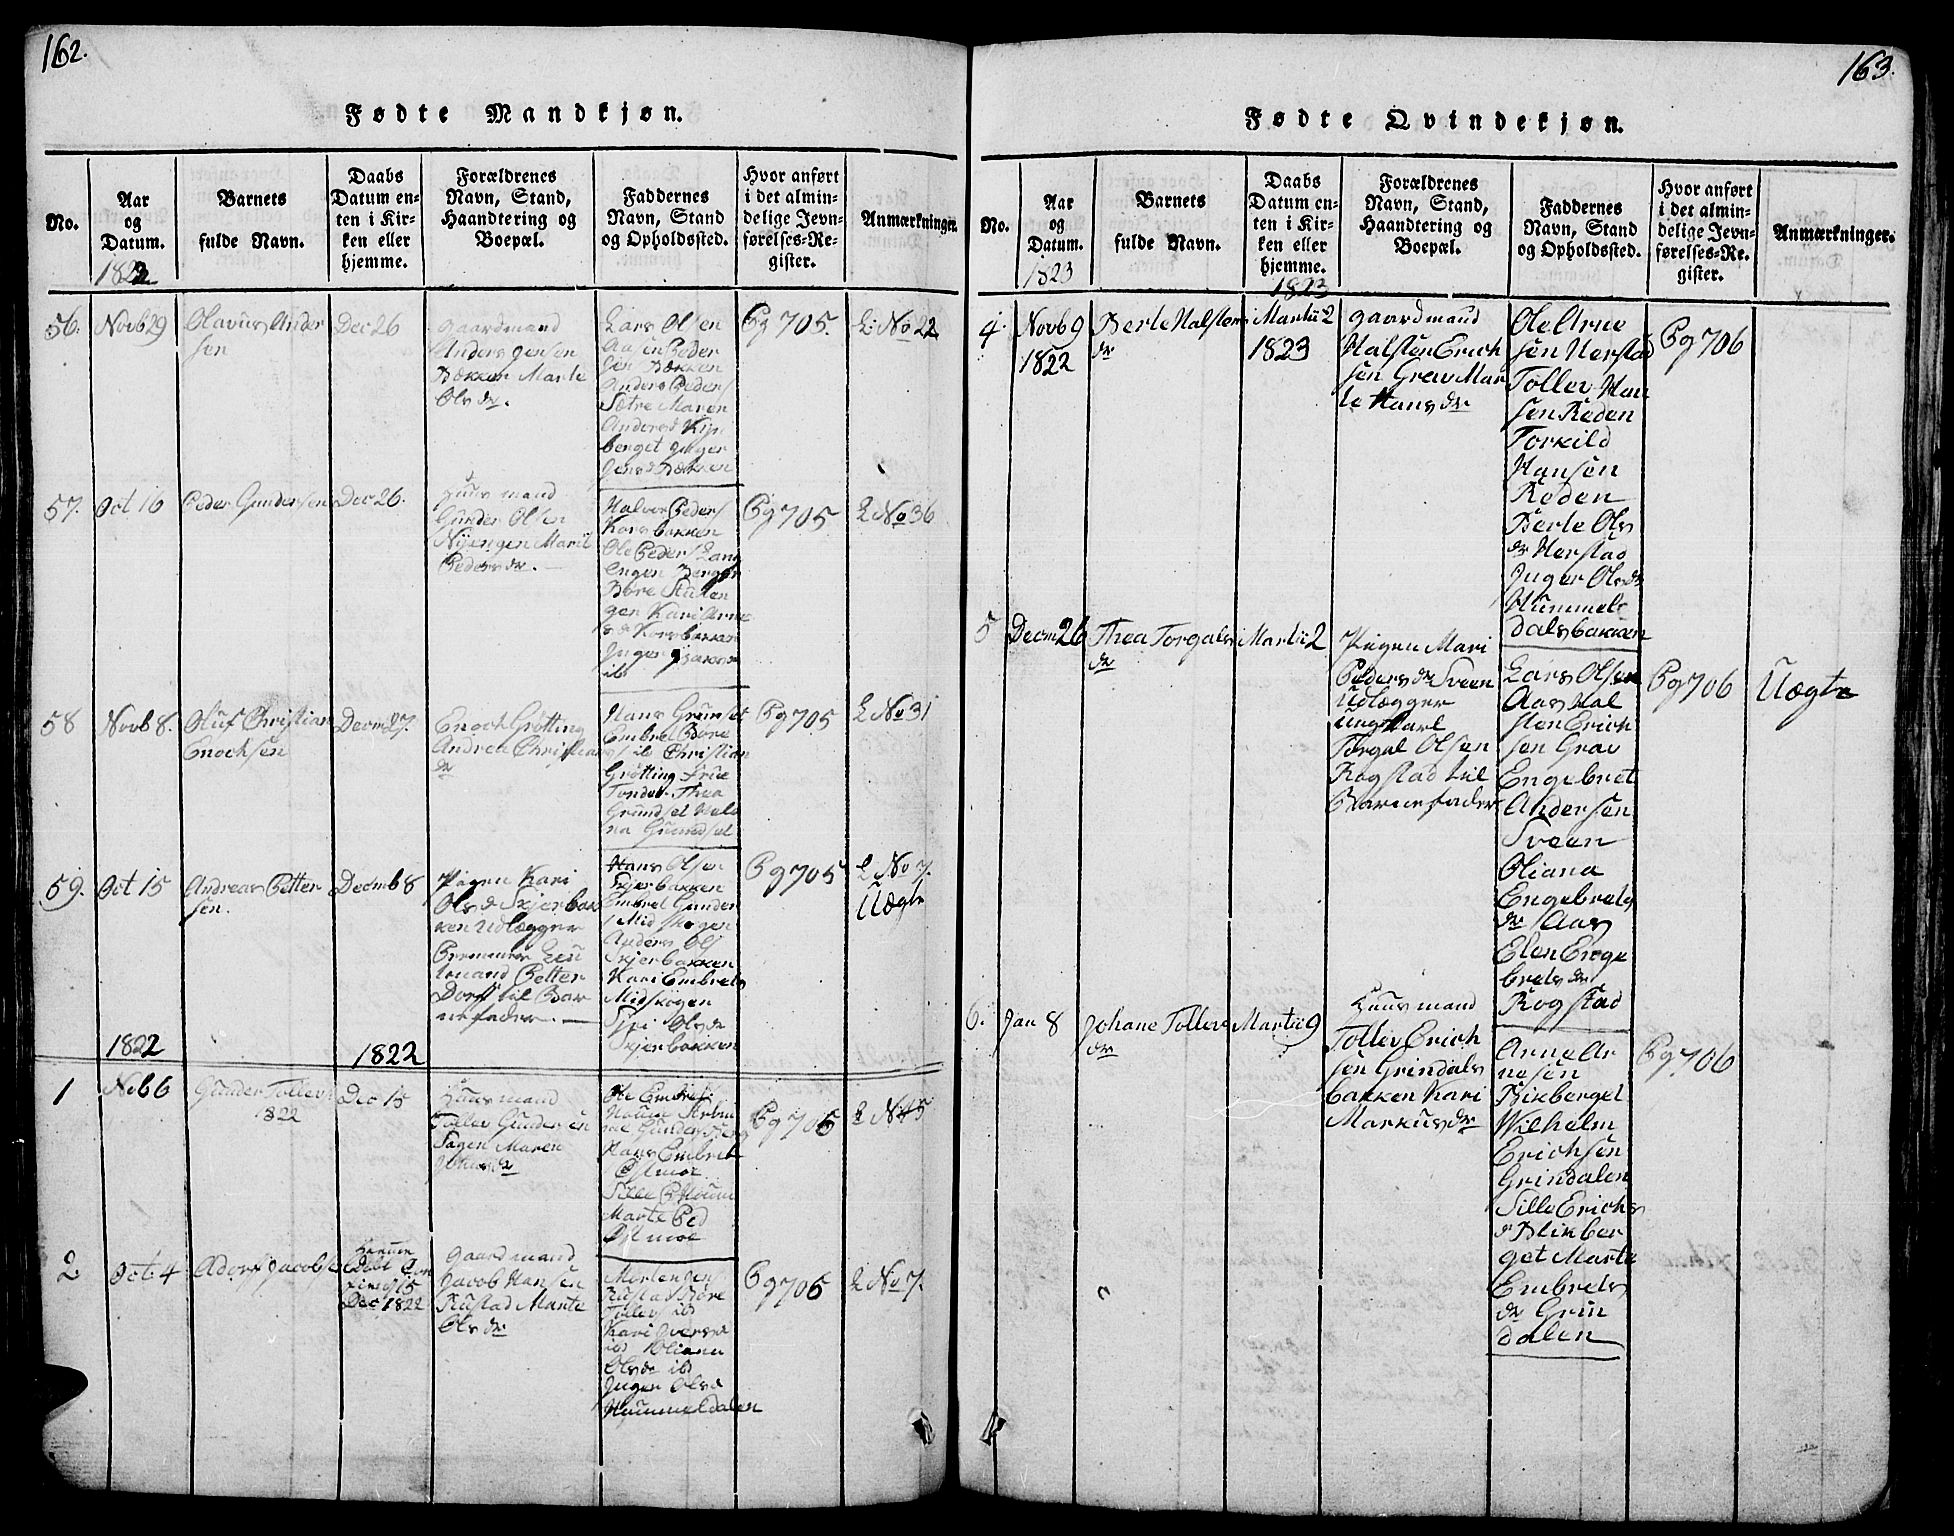 162.
Fødte Mandkjøn.
No.
Aar
og
Datum.
1822
Barnets
fulde Navn.
Daabs
Datum en-
ten i Kir-
ken eller
hjemme.
Forældrenes
Navn, Stand,
Haandtering og
Boepæl.
Faddernes
Navn, Stand
og Opholdssted.
Hvor anført
i det almin-
delige Jevn-
førelses-Re-
gister.
Anmærkninger.
56.
Novb 29
Olavus Ander
sen
Dec 26
Gaardmand
Anders Jensen
Bækken Marte
Olsdr.
Lars Olsen
Aasen Peder
sen Bækken
Anders Peders
Sætre Maren
Andersd Kin
berget Inger
Jensd Bækken
Pg 705.
L: No 22
57.
Oct 16
Peder Gundersen
Dec 26.
Huusmand
Gunder Olsen
Nyengen Marit
Pedersdr.
Halvor Peders
Korsbakken
Ole Peders Lang
engen Berger
Bore Stuen
gen Kari Arne
sd Korsbakken
Inger
ib
Pg 705
L No 36
58
Novb 8.
Oluf Christian
Enochsen
Decm 27.
Enoch Grøtting
Andrea Christians
dr
Hans Grunset
Embret Bore
s ib Christian
Grøtting Frue
Tonder Thea
Grundset Hele
na Grundset
Pg 705
L No 31
59.
Oct 15
Andreas Petter
sen.
Decmb 8
Pigen Kari
Olsd Skjerbak
ken Udlægger
Petter
Dorff til Bar
nefader.
Hans Olsen
Skjerbakken
Embret Gunder
s Midskogen
Anders Ols
Skjerbakken
Kari Embrets
Midskogen
Siri Olsdr
Skjerbakken
Pg 705
L No 7.
Uægte
1822
1822
1
Nob 6
Gunder Tollevs
1822
Dec 15
Huusmand
Tollev Gundersen
Sagen Maren
Ole Embrets
Hans Embrets
Østmoe
Marte Ped
Østmoe
Pg 706
L No 5
2
Oct. 4
Adolf Jacobse
Dec 1822
Gaardmand
Jacob Hansen
Rustad Marte
Olsdr
Morten Jens
Rustad Bore
Tollevs ib
Kari Iversd
ib Oliana
Olsdr ib
Inger Olsd
Hummeldalen
Pg 706
L No 7.
163.
Fødte Qvindekjøn.
No.
Aar
og
Datum.
1823
Barnets
fulde Navn.
Daabs
Datum en-
ten i Kir-
ken eller
hjemme.
1823
Forældrenes
Navn, Stand,
Haandtering og
Boepæl.
Faddernes
Navn, Stand
og Opholdssted.
Hvor anført
i det almin-
delige Jevn-
førelses-Re-
gister.
Anmærkninger.
4.
Novb 9
1822
Berte Halstens
dr
Martii 2
1823
Gaardmand
Halsten Erich
sen Grav Mar
te Hansdr
Ole Arne
sen Herstad
Tollev Han
sen Røden
Torkild
Hansen
Røden
Berte Ols
dr Herstad
Inger Olsdr
Hummel
dalsbakken
Pg 706
5
Decm 26
Thea Torgals
dr
Martii 2
Pigen Mari
Pedersdr Sveen
Udlægger
ungkarl
Torgal Olsen
Rogstad til
Barnefader
Lars Olsen
Aas Hal
sten Erich
sen Grav
Engebret
Andersen
Sveen
Oliana
Engebrets
dr Aas
Elen Enge
bretsdr
Rogstad
Pg 706
Uægte
6.
Jan 8
Johane Tollevs
dr
Martii 9
Huusmand
Tollev Erich
sen Grindals
bakken Kari
Markusdr
Arne Ar
nesen
Blikberget
Wilhelm
Erichsen
Grindalen
Sille Erichs
d Blikber
get Marte
Embrets
dr Grin
dalen
Pg 706